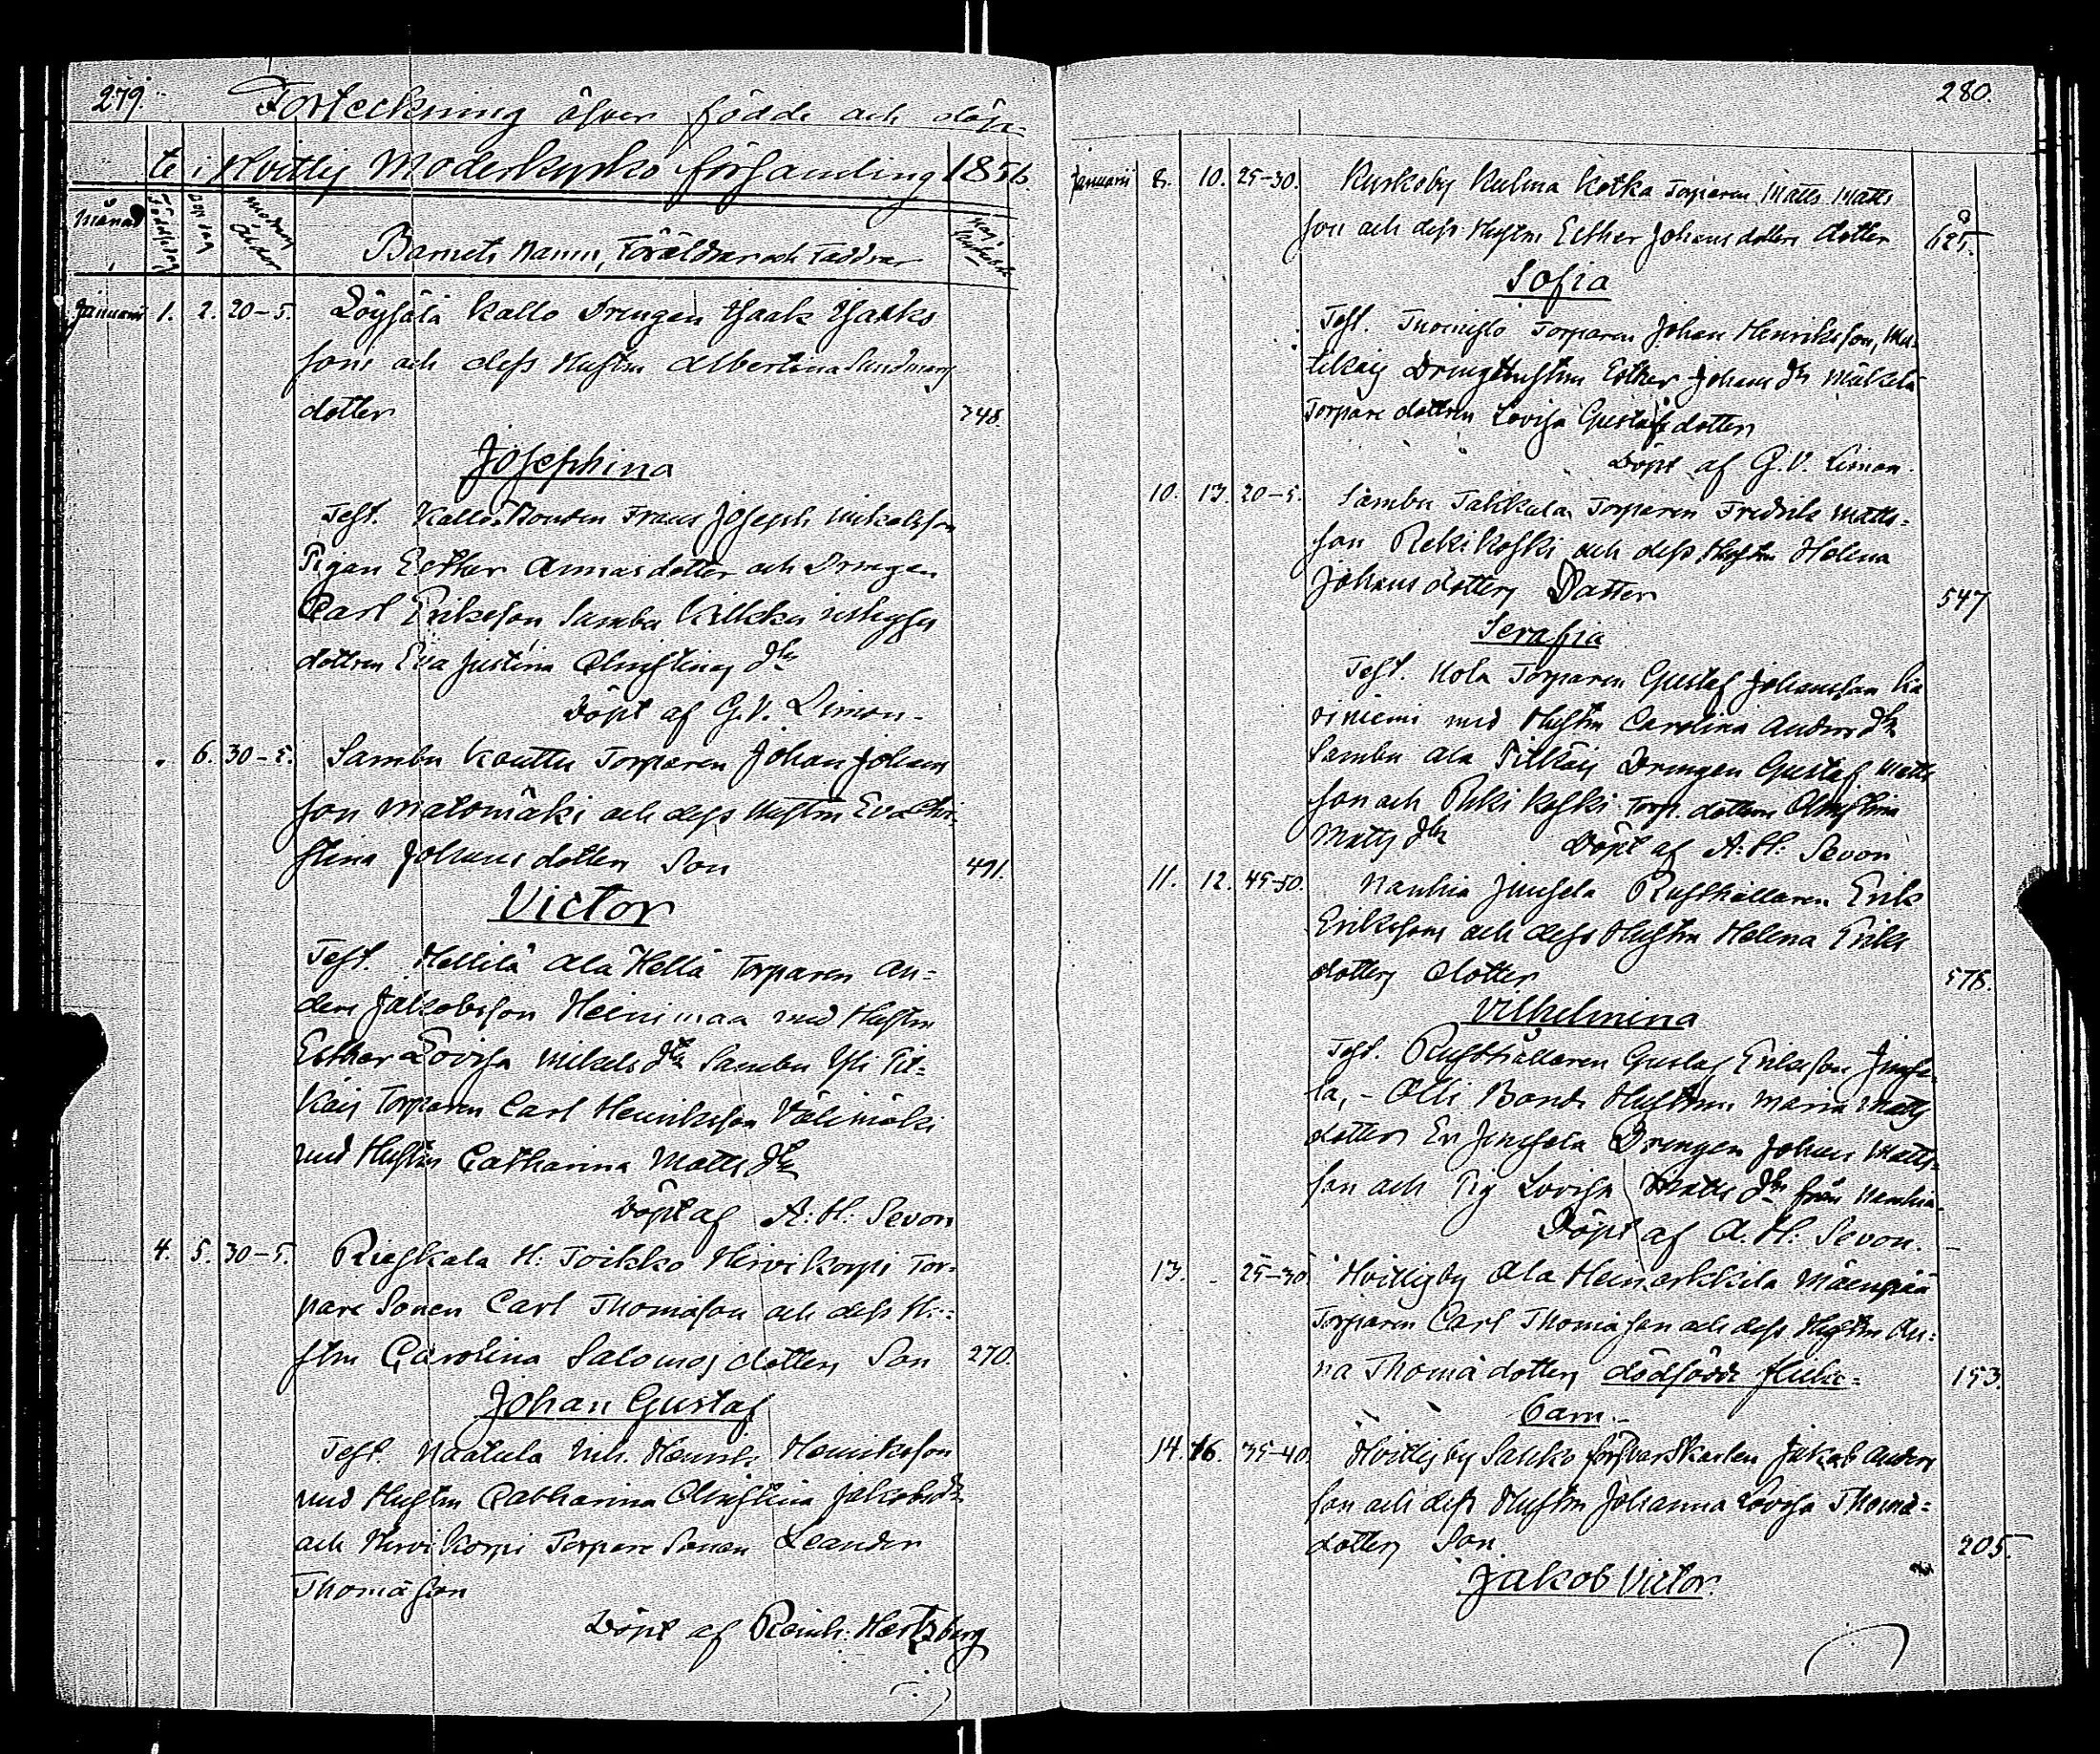 279.
Förteckning öfver födde och döp-
te i Hvittis Moderkyrko församling 1856.
Månad
Födelsedag
Döp. dag
Modrens ålder
Barnets Namn, Föräldrar och Faddrar
Januarii 1. 2. 20-5. Löysälä Kallo Drengen Isaak Isaaks
sons och dess Hustru Albertina Sandmans
dotter 348.
Josephina
Test. Kallo Bonden Frans Joseph Mikelsson
Pigan Esther Annasdotter och Drengen
Carl Eriksson Sambu Kilkku
dottren Eva Justina Christinas dtr
Döpt af G.V. Limon.
. 6. 30-5. Sambu Kouttu Torparen Johan Johans
son Matomäki och dess Hustru Eva Chri-
stina Johansdotters Son 491.
Victor
Test. Hellilä Ala Hellä Torparen An-
ders Jakobsson Heinimaa med Hustru
Esther Lovisa Mikels dtr Sambu Yli Pit-
käis Torparen Carl Henriksson Välimäki
med Hustru Catharina Matts dtr
Döpt af A: H: Sevon
4. 5. 30-5. Rieskala H: Toikko Hirvikorpi Tor-
pare Sonen Carl Thomasson och dess Hu-
stru Carolina Salomos dotters Son 270.
Johan Gustaf
Test. Naatula Henriksson
med Hustru Catharina Christina Jakobsdtr
och Hirvikorpi Torpare Sonen Leander
Thomasson
Döpt af Reinh: Hertzberg
280.
Januarii 8. 10. 25-30. Kyrkoby Kulma Kotka Torparen Matts Matts
son och dess Hustru Esther Johansdotters dotter 625.
Sofia
Test. Tuomisto Torparen Johan Henriksson,
Drengehustrun Esther Johans dtr Mäkelä
Torpare dottren Lovisa Gustafsdotter
Döpt af G.V. Limon.
10. 13. 20-5. Sambu Takkula Torparen Fredrik Matts-
son Rekikoski och dess Hustru Helena
Johansdotters Dotter 547
Serafia
Test. Kola Torparen Gustaf Johansson
med Hustru Carolina Anders dtr
Sambu Ala Pitkäis Drengen Gustaf Matts
son och Rekikoski Torp. dottren Christina
Matts dtr Döpt af A: H: Sevon
11. 12. 45-50. Nanhia Junsela Rusthållaren Erik
Erikssons och dess Hustru Helena Eriks
dotters dotter 578.
Vilhelmina
Test. Rusthållaren Gustaf Eriksson Junse-
la, - Olli Bonde Hustrun Maria Matts
dotter En Junsela Drengen Johan Matts-
son och Pig Lovisa Matts dtr från Nanhia
Döpt af A. H: Sevon.
13. - 25-30. Hvittisby Ala Heinerkkilä Mäenpää
Torparen Carl Thomasson och dess Hustru An-
na Thomädotters dödfödde flicke-
barn.- 153.
14. 16. 35-40. Hvittisby Sahko försvarskarlen Jakob Anders
son och dess Hustru Johanna Lovisa Thomä-
dotters Son 205.
Jakob Victor.